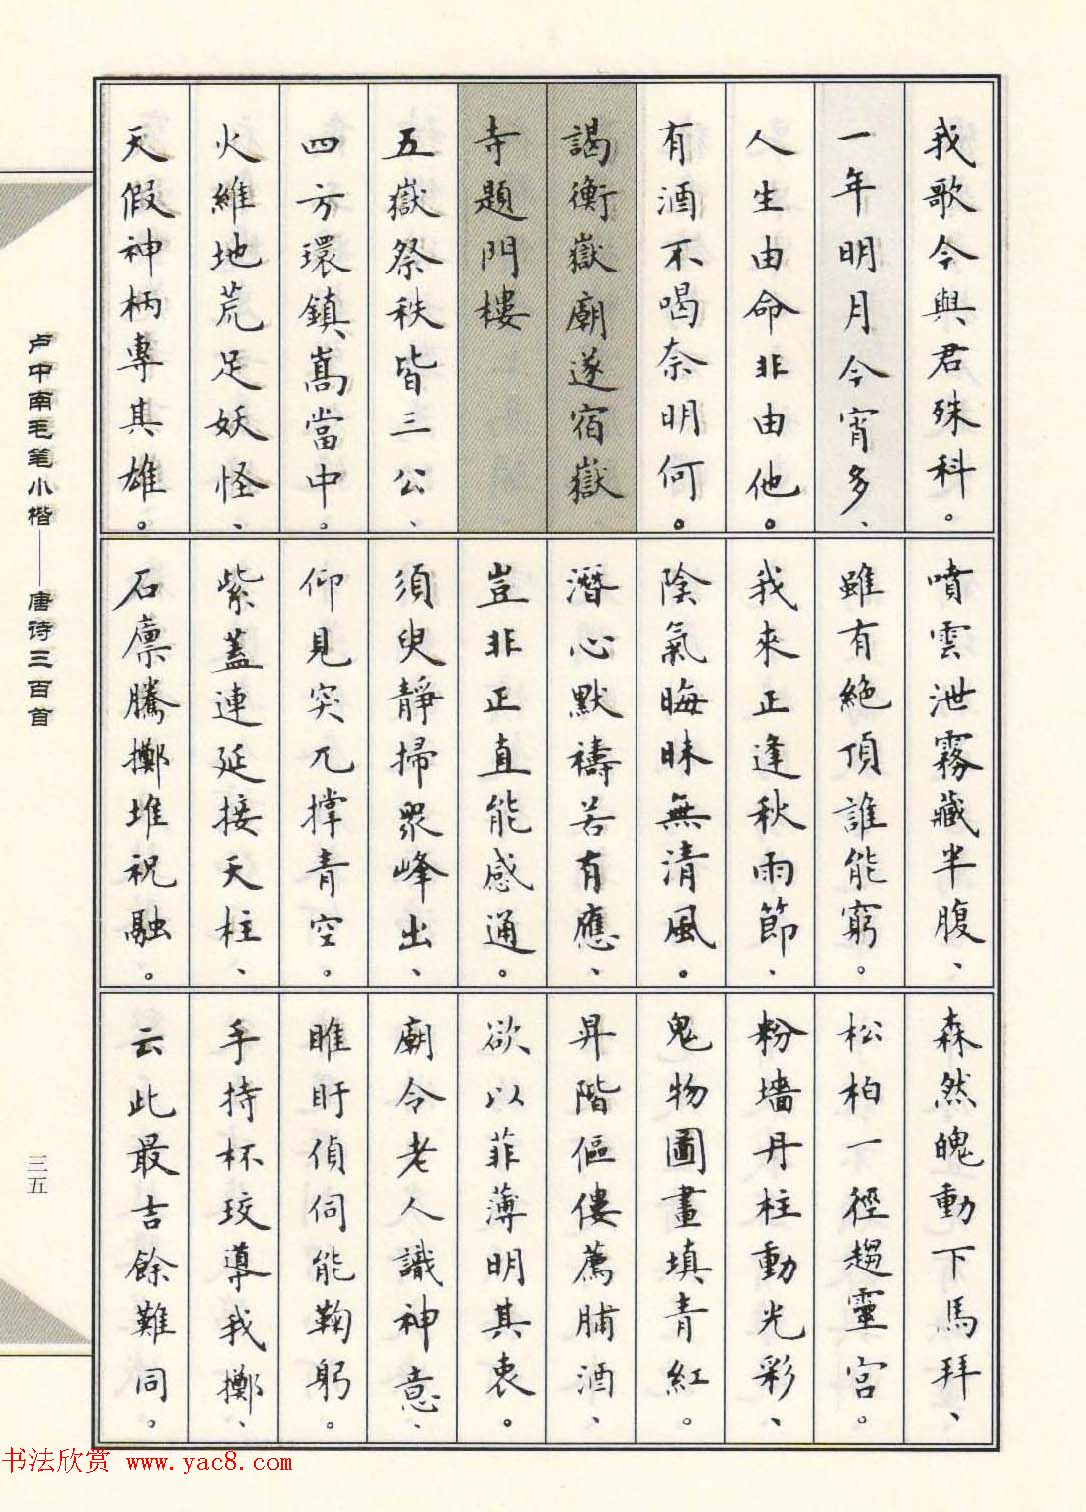 我歌今與君殊科。
一年明月今宵多、
人生由命非由他。
有酒不喝奈明何。
謁衡嶽廟遂宿嶽
寺題門樓
五嶽祭秩皆三公、
四方環鎮、嵩當中。
火維地荒足妖怪、
天假神柄專其雄。
噴雲泄霧藏半腹、
雖有絕頂誰能窮。
我來正逢秋雨節、
陰氣晦昧無清風。
潛心默禱若有應、
豈非正直能感通。
須臾靜掃眾峰出、
仰見突兀撐青空。
紫蓋連延接天柱、
石廩騰擲堆祝融。
森然魄動下馬拜、
松柏一徑趨靈宮。
粉墻丹柱動光彩、
鬼物圖畫填青紅。
昇階傴僂薦脯酒、
欲以菲薄明其衷。
廟令老人識神意、
睢盱偵伺能鞠躬。
手持杯珓導我擲、
云此最吉餘難同。
卢中南毛笔小楷——唐诗三百首
三五
书法欣赏 www.yac8.com